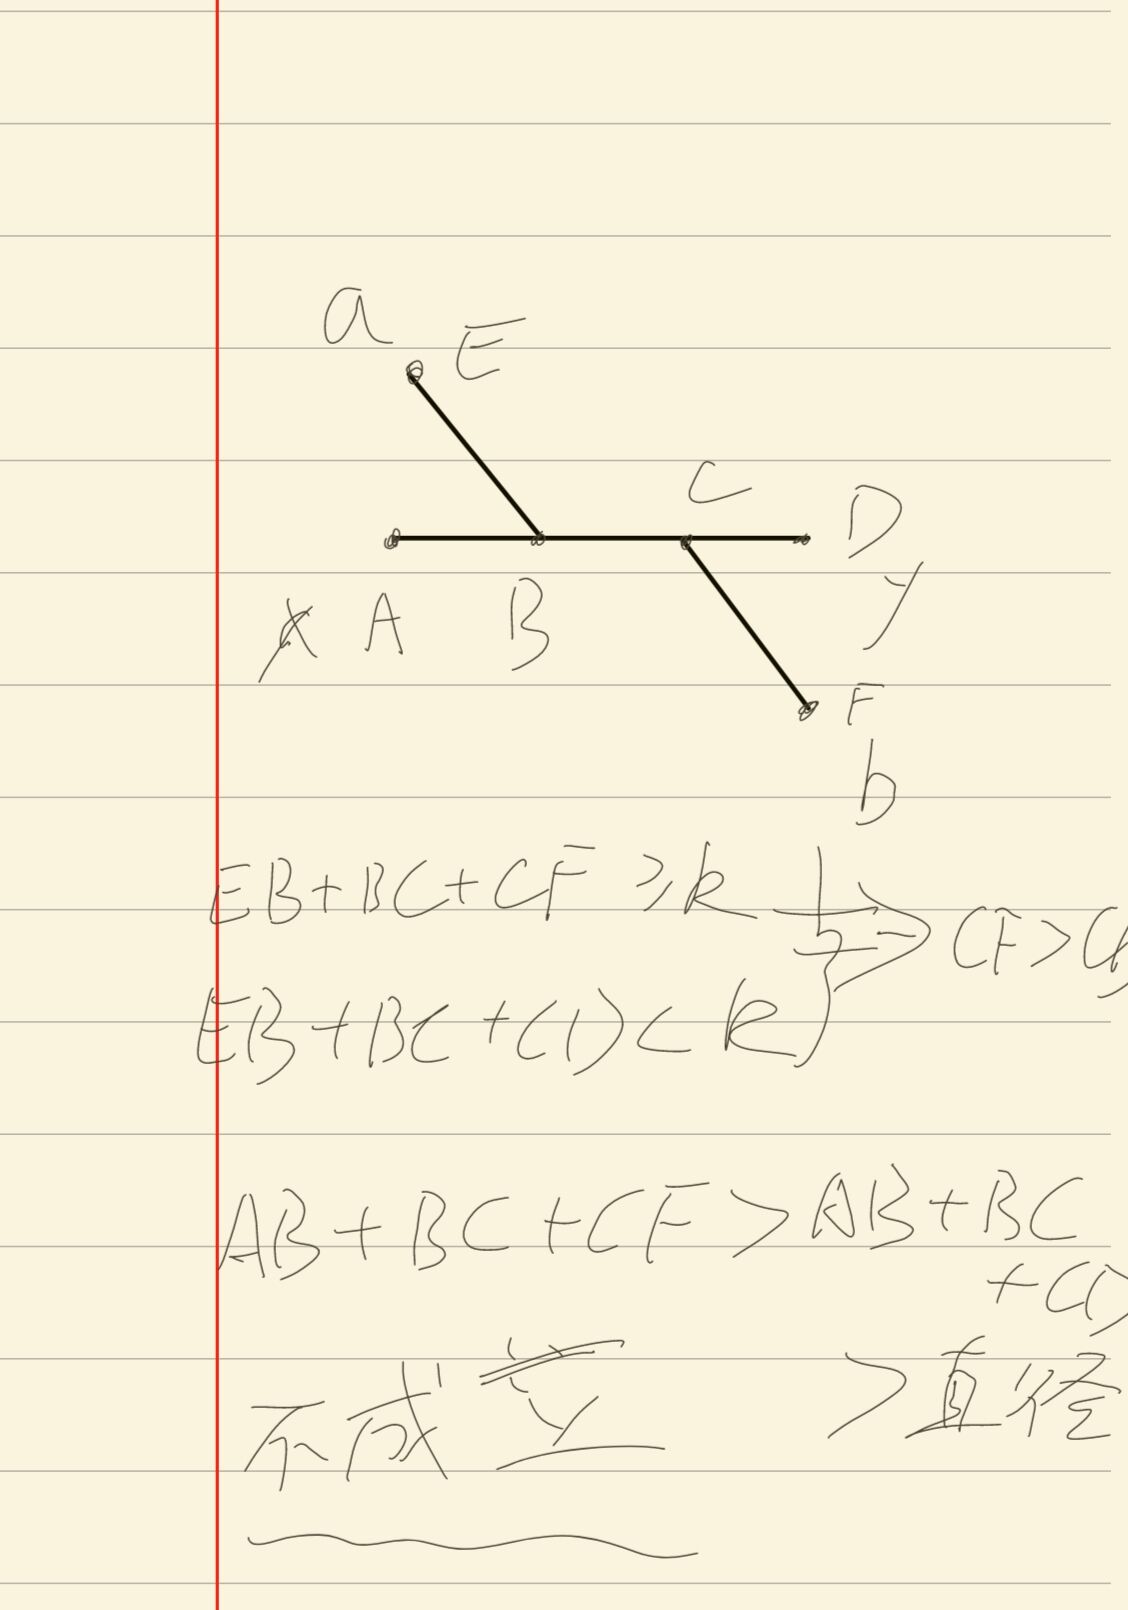 a E
C
D
y
x A B
F
b
EB+BC+CF ≥ k
EB+BC+CD < k
} => CF > CD
AB+BC+CF > AB+BC
+CD
不成立 > 直径